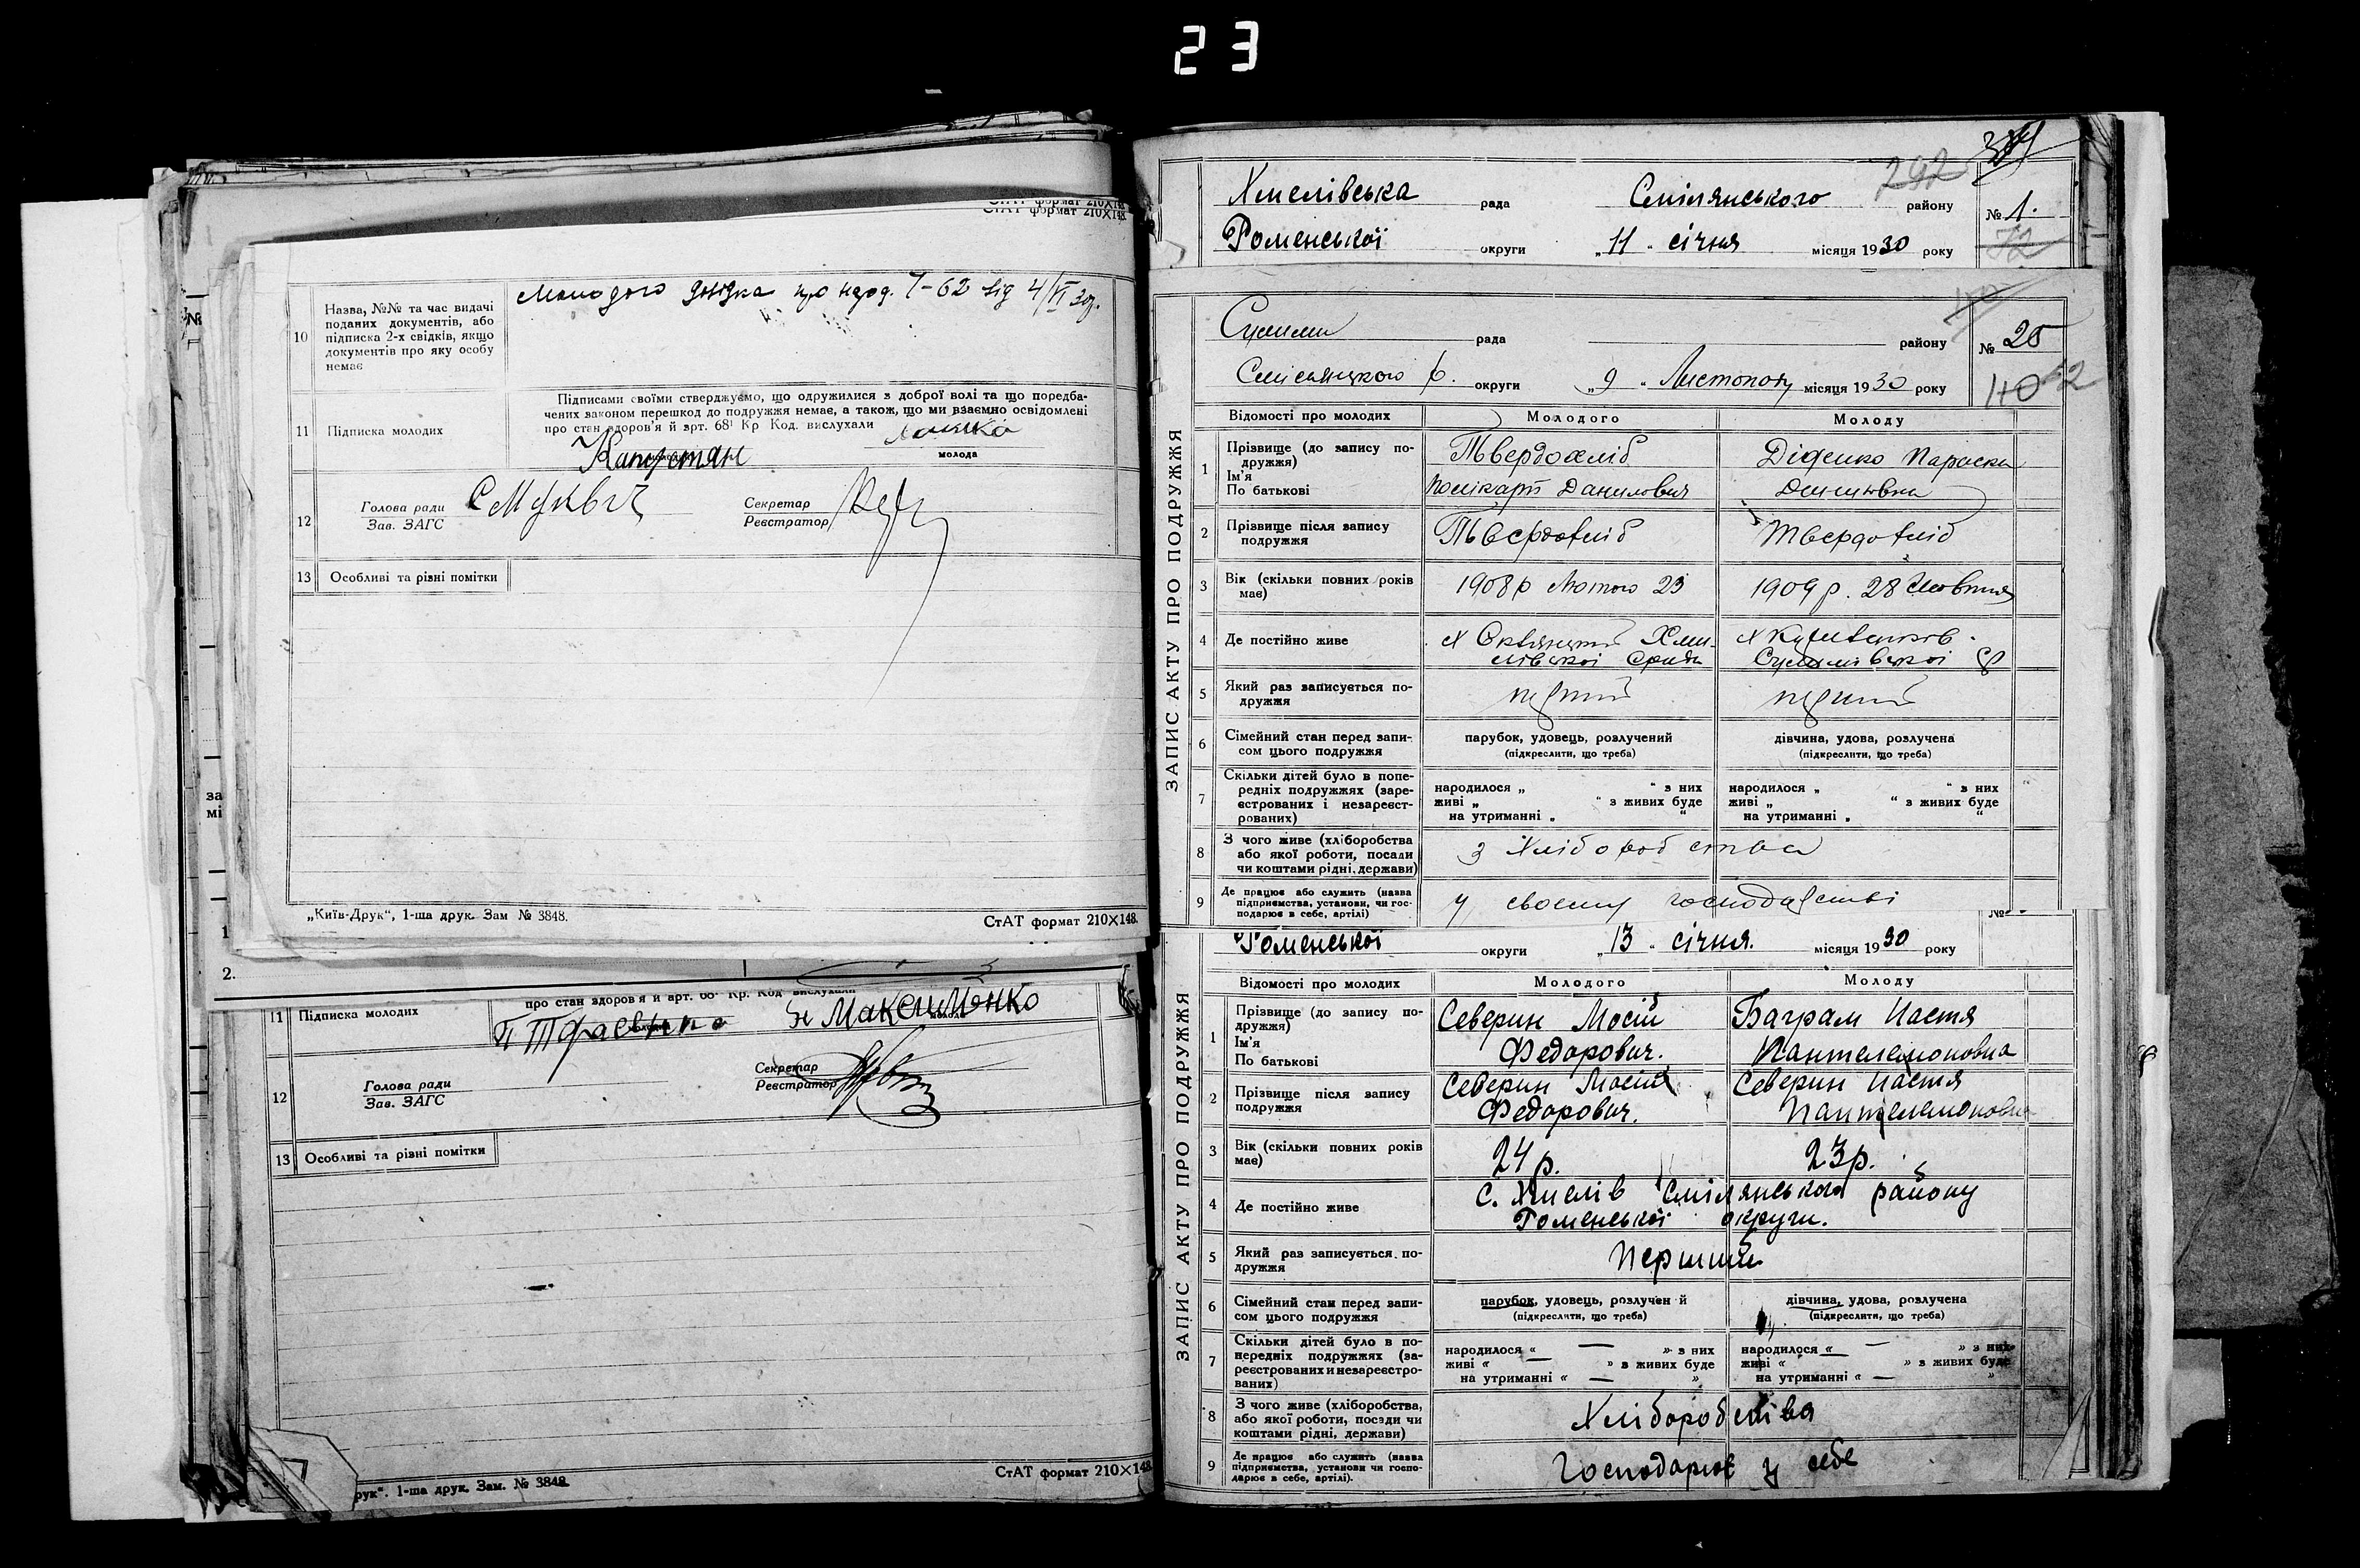 23
СтАТ формат 210×148.
СтАТ формат 210×148.
10 Назва, №№ та час видачі
поданих документів, або
підписка 2-х свідків, якщо
документів про яку особу
немає
Молодого довідка про народ. 7-62 від 4/VI 30р.
Підписами своїми стверджуємо, що одружилися з доброї волі та що поредба-
чених законом перешкод до подружжя немає, а також, що ми взаємно освідомлені
про стан здоров'я й арт. 68¹ Кр Код. вислухали
11 Підписка молодих
Капустян
молода
12 Голова ради
Зав. ЗАГС
Секретар
Реєстратор
13 Особливі та різні помітки
„Київ-Друк“, 1-ша друк. Зам № 3848.
СтАТ формат 210×148.
№
за
мі
1
2.
про стан здоров'я й арт. 68¹ Кр. Код вислухали
11 Підписка молодих
Максименко
12 Голова ради
Зав. ЗАГС
Секретар
Реєстратор
13 Особливі та різні помітки
рук“. 1-ша друк. Зам. № 3848.
СтАТ формат 210×148.
292
Хмелівська рада Смілянського району № 1.
Роменської округи „11“ січня місяця 1930 року
72
рада району № 25
округи „9“ Листопаду місяця 1930 року
40
ЗАПИС АКТУ ПРО ПОДРУЖЖЯ
Відомості про молодих Молодого Молоду
1 Прізвище (до запису по-
дружжя)
Ім'я
По батькові
Твердохліб
Полікарп Данилович
Діденко Параска
2 Прізвище після запису
подружжя
Твердохліб
Твердохліб
3 Вік (скільки повних років
має)
1908р Лютого 23
1909р. 28 Жовтня
4 Де постійно живе
Хме-
лівської С ради
5 Який раз записується по-
дружжя
перший
перший
6 Сімейний стан перед запи-
сом цього подружжя
парубок, удовець, розлучений
(підкреслити, що треба)
дівчина, удова, розлучена
(підкреслити, що треба)
7 Скільки дітей було в попе-
редніх подружжях (заре-
єстрованих і незареєст-
рованих)
народилося „ “ з них
живі „ “ з живих буде
на утриманні „ “
народилося „ “ з них
живі „ “ з живих буде
на утриманні „ “
8 З чого живе (хліборобства
або якої роботи, посади
чи коштами рідні, держави)
З Хліборобства
9 Де працює або служить (назва
підприємства, установи, чи гос-
подарює в себе, артілі)
у своєму господарстві
№
Роменської округи „13“ січня. місяця 1930 року
ЗАПИС АКТУ ПРО ПОДРУЖЖЯ
Відомості про молодих Молодого Молоду
1 Прізвище (до запису по-
дружжя)
Ім'я
По батькові
Северин Мосій
Федорович.
Баграм Настя
Пантелемоновна
2 Прізвище після запису
подружжя
Северин Мосій
Федорович.
Северин Настя
Пантелемоновна
3 Вік (скільки повних років
має)
24р.
23р.
4 Де постійно живе
С. Хмелів Смілянського району
Роменської округи.
5 Який раз записується по-
дружжя
Перший
6 Сімейний стан перед запи-
сом цього подружжя
парубок, удовець, розлучен й
(підкреслити, що треба)
дівчина, удова, розлучена
(підкреслити, що треба)
7 Скільки дітей було в по-
передніх подружжях (за-
реєстрованих и незареєстро-
ваних)
народилося « — » з них
живі « — » з живих буде
на утриманні « — »
народилося « — » з них
живі « — » з живих буде
на утриманні « — »
8 З чого живе (хліборобства,
або якої роботи, посади чи
коштами рідні, держави)
Хліборобства
9 Де працює або служить (назва
підприємства, установи чи госпо-
дарює в себе, артілі).
Господарює у себе